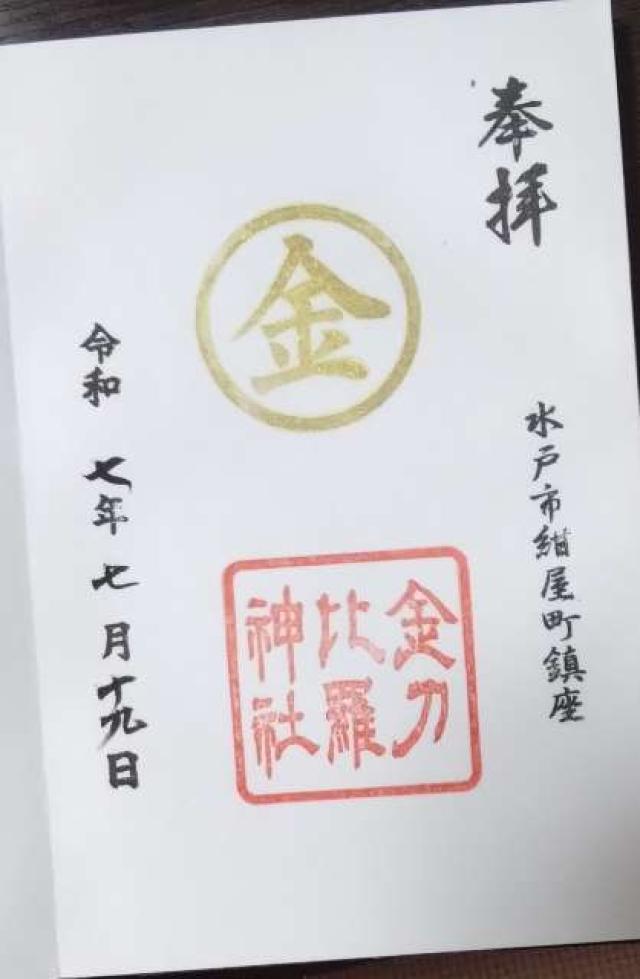 奉拝
水戸市紺屋町鎮座
金
金刀
比羅
神社
令和 七年 七月十九日